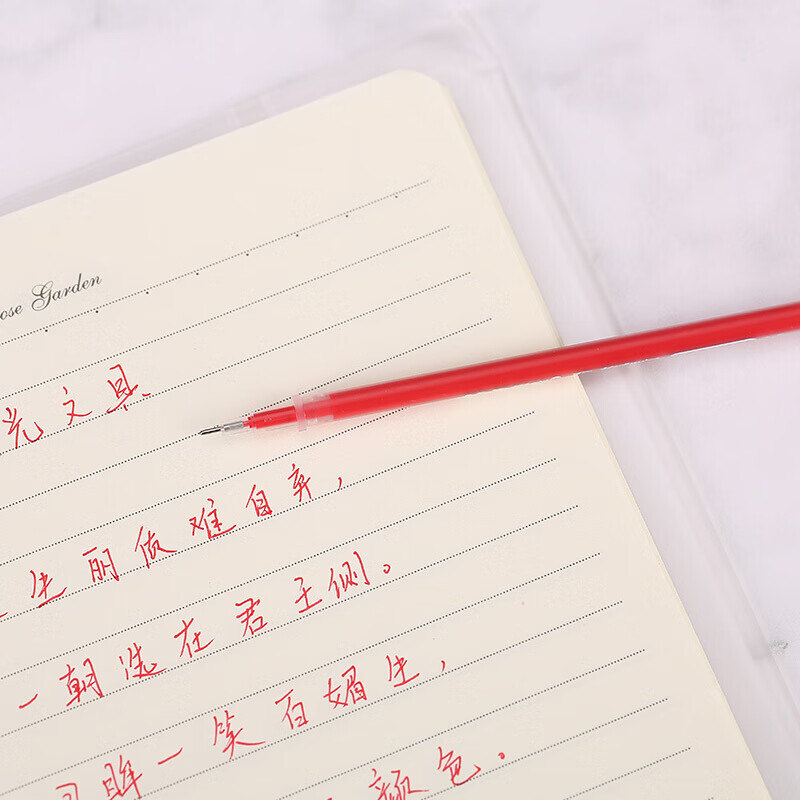 ose Garden
光文具
生丽做难自弃，
一朝选在君王侧。
回眸一笑百媚生，
颜色。